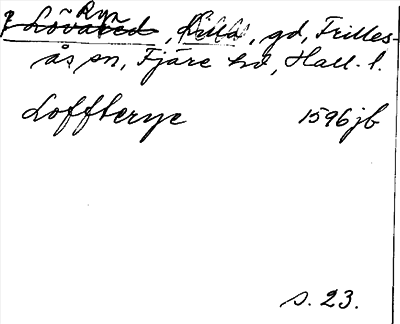 Ryr
Lövåred, Lilla, gd, Frilles-
ås sn, Fjäre hd, Hall. l.
Loffterye 1596 jb
s. 23.